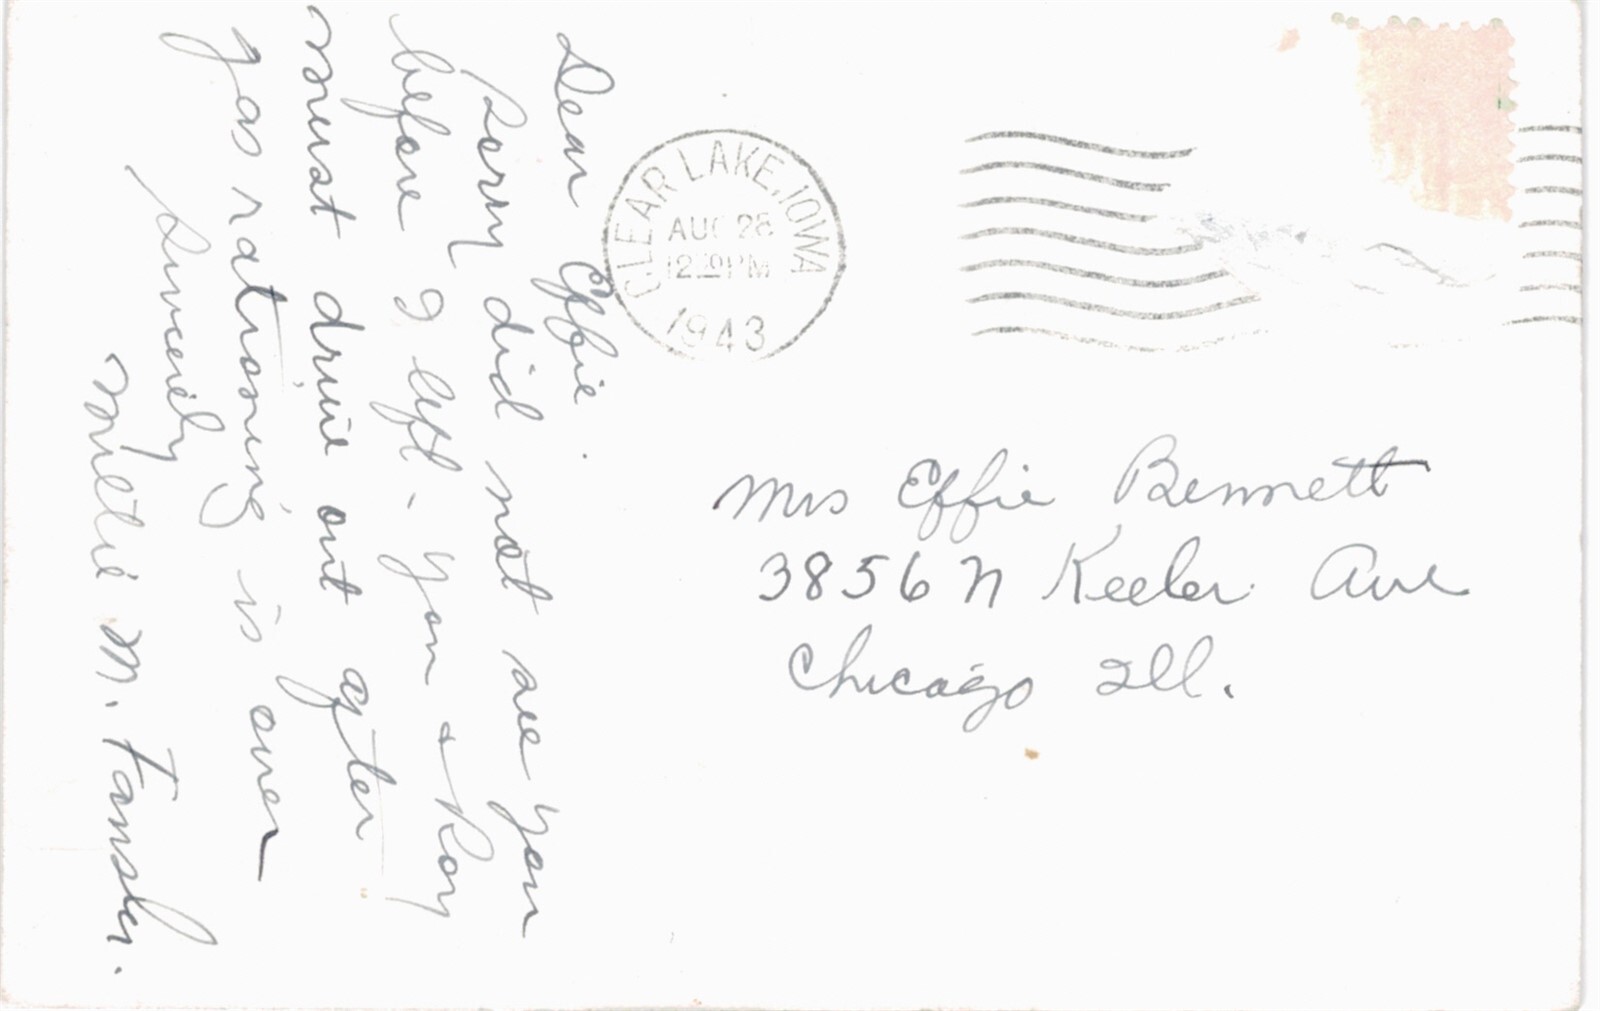 Dear Effie.
Sorry did not see you
before I left - you & Roy
must drive out after
gas rationing is over
Sincerely
Mrs M. Tamsler.
CLEAR LAKE, IOWA
AUG 28
12 PM
1943
Mrs Effie Bennett
3856 N Keeler Ave
Chicago Ill.